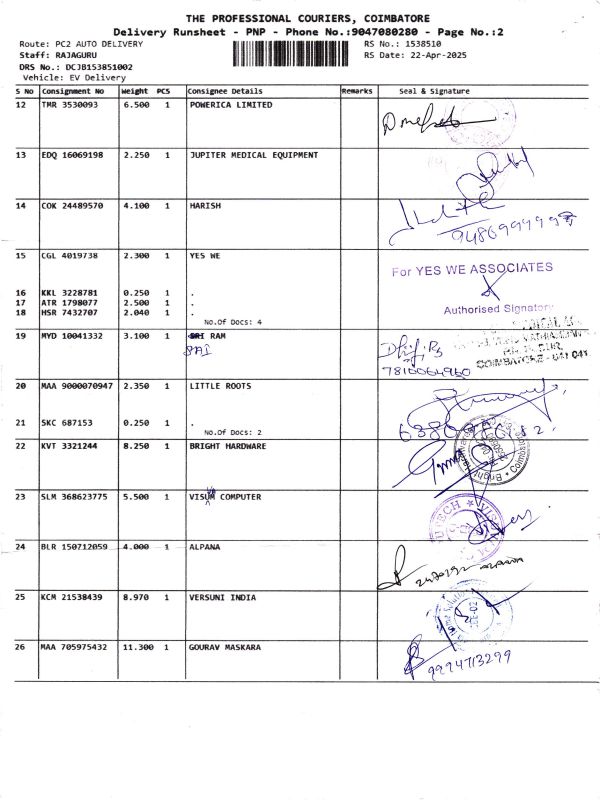 THE PROFESSIONAL COURIERS, COIMBATORE
Delivery Runsheet - PNP - Phone No.:9047080280 - Page No.:2
Route: PC2 AUTO DELIVERY RS No.: 1538510
Staff: RAJAGURU RS Date: 22-Apr-2025
DRS No.: DCJB153851002
Vehicle: EV Delivery
S No Consignment No Weight PCS Consignee Details Remarks Seal & Signature
12 TMR 3530093 6.500 1 POWERICA LIMITED
13 EDQ 16069198 2.250 1 JUPITER MEDICAL EQUIPMENT
14 COK 24489570 4.100 1 HARISH
15 CGL 4019738 2.300 1 YES WE
For YES WE ASSOCIATES
16 KKL 3228781 0.250 1 .
17 ATR 1798077 2.500 1 .
18 HSR 7432707 2.040 1 . Authorised Signatory
No.Of Docs: 4
19 MYD 10041332 3.100 1 SRI RAM
SAI
COIMBATORE - 641 041
7810064960
20 MAA 9000070947 2.350 1 LITTLE ROOTS
21 SKC 687153 0.250 1 .
No.Of Docs: 2
22 KVT 3321244 8.250 1 BRIGHT HARDWARE
23 SLM 368623775 5.500 1 VISUM COMPUTER
24 BLR 150712059 4.000 1 ALPANA
25 KCM 21538439 8.970 1 VERSUNI INDIA
26 MAA 705975432 11.300 1 GOURAV MASKARA
9994713299